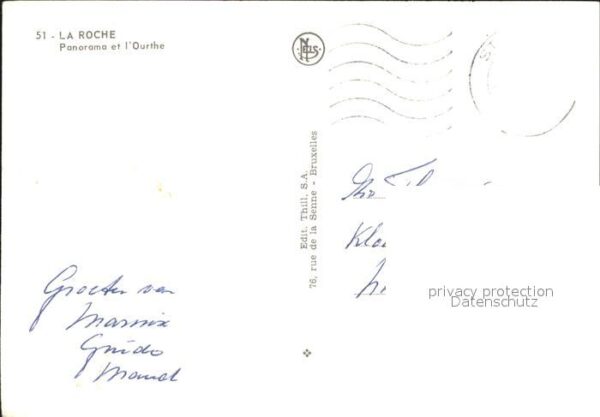 51 - LA ROCHE
Panorama et l'Ourthe
NELS
Edit. Thill, S.A.
76, rue de la Senne - Bruxelles
Klo
privacy protection
Datenschutz
Groeten van
Marnix
Guido
Manuel